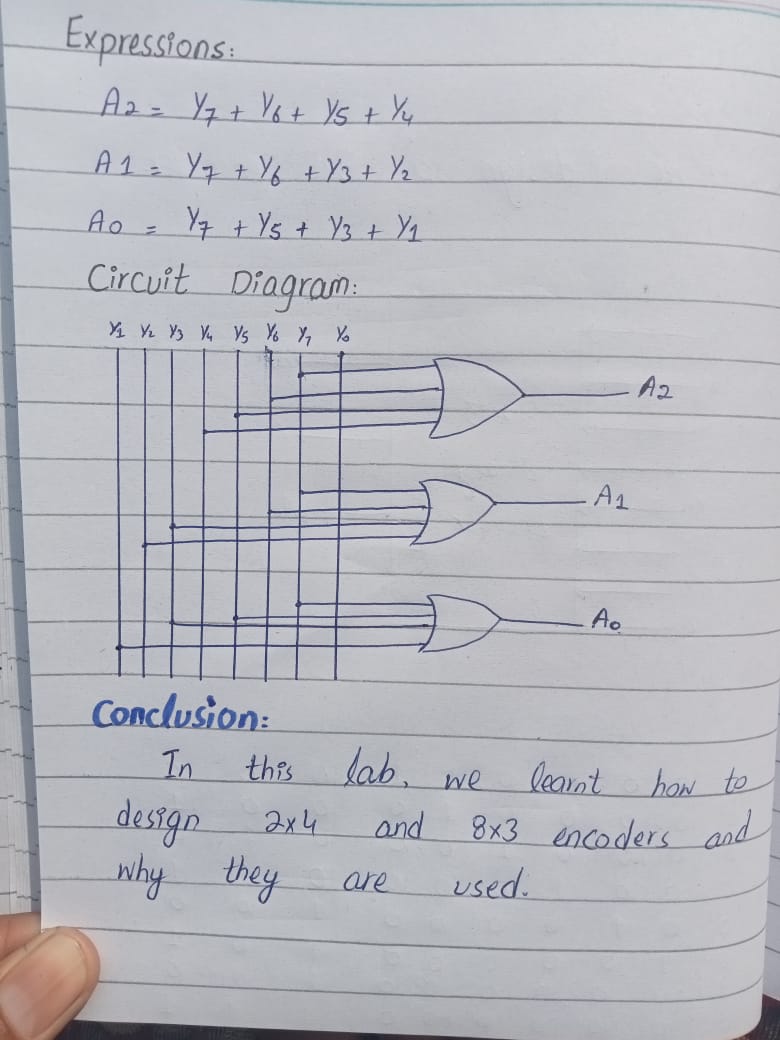 Expressions:
A2 = Y7 + Y6 + Y5 + Y4
A1 = Y7 + Y6 + Y3 + Y2
A0 = Y7 + Y5 + Y3 + Y1
Circuit Diagram:
Y1 Y2 Y3 Y4 Y5 Y6 Y7 Y0
A2
A1
A0
Conclusion:
In this lab, we learnt how to
design 2x4 and 8x3 encoders and
why they are used.